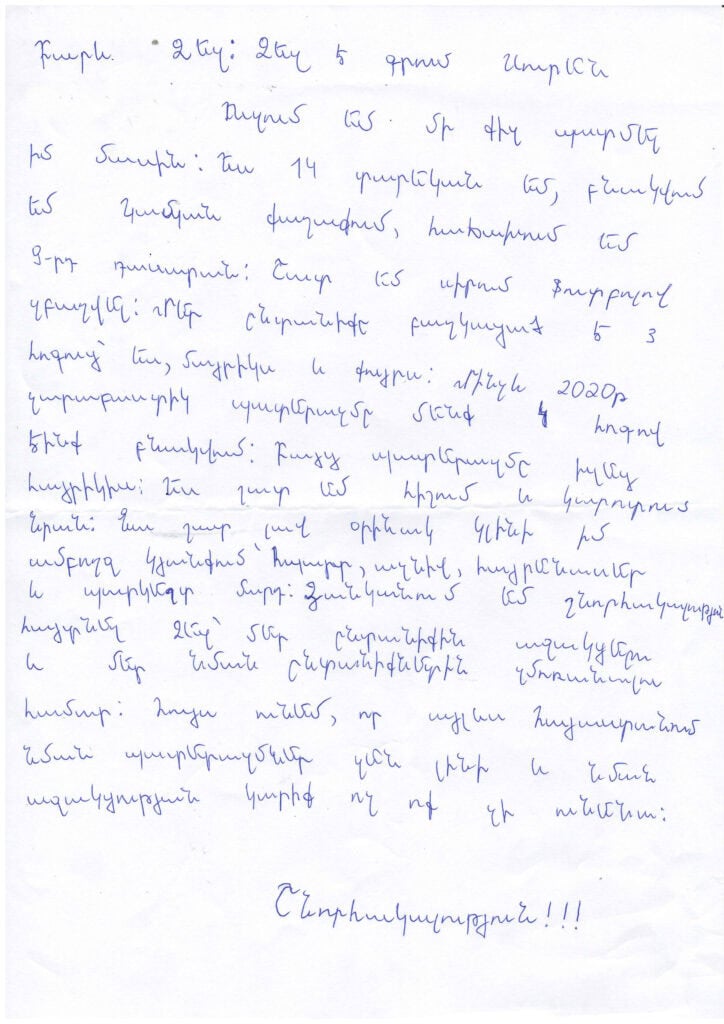 Բարև Ձեզ: Ձեզ է գրում Սուրենն
Ուզում եմ մի փչ պատմել
իմ մասին: Ես 14 տարեկան եմ, բնակվում
եմ քաղաքում, հաճախում եմ
9-րդ դասարան: Շատ եմ սիրում ֆուտբոլով
զբաղվել: Մեր ընտանիքը բաղկացած է 3
հոգուց՝ ես, մայրիկս և քույրս: Մինչև 2020թ
ղարաբաղյան պատերազմը մենք 4 հոգով
էինք բնակվում: Բայց պատերազմը խլեց
հայրիկիս: Ես շատ եմ հիշում և կարոտում
նրան: Նա շատ լավ օրինակ կլինի իմ
ամբողջ կյանքում՝ հպարտ, ազնիվ, հայրենասեր
և պարկեշտ մարդ: Ցանկանում եմ շնորհակալություն
հայտնել Ձեզ՝ մեր ընտանիքին աջակցելու
և մեր նման ընտանիքներին չմոռանալու
համար: Հույս ունեմ, որ այլևս Հայաստանում
նման պատերազմներ չեն լինի և նման
աջակցության կարիք ոչ ոք չի ունենա:
Շնորհակալություն!!!